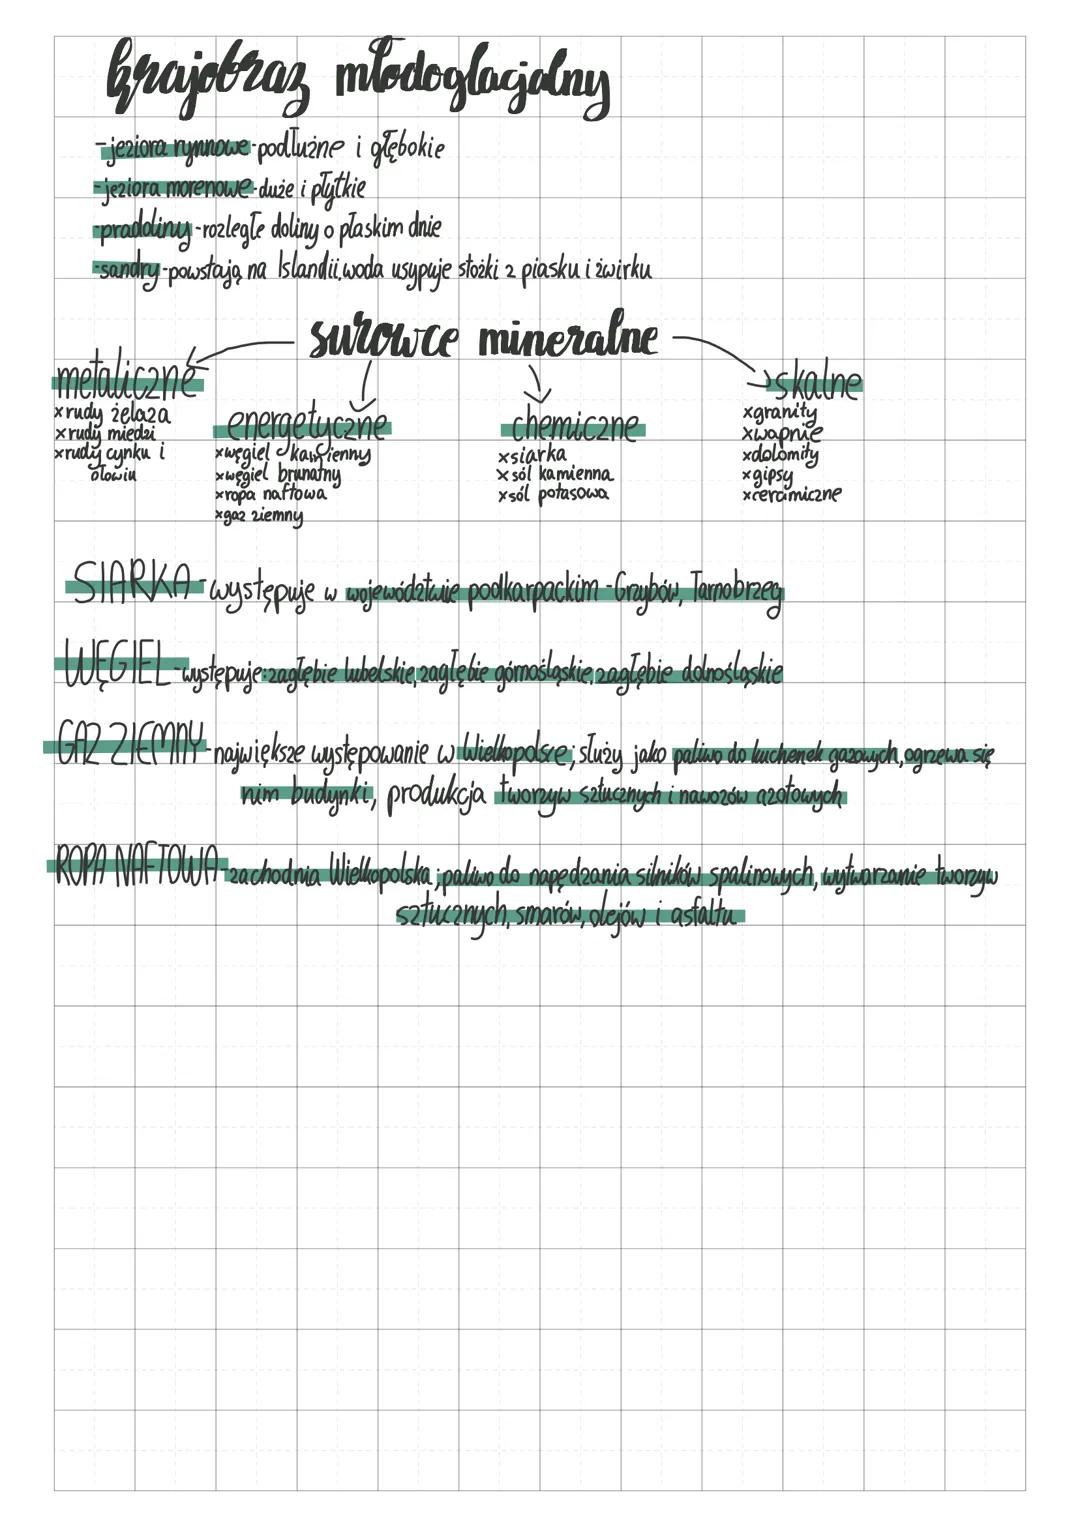 krajobraz młodoglacjalny
-jeziora rynnowe-podłużne i głębokie
-jeziora morenowe-duże i płytkie
-pradoliny-rozległe doliny o płaskim dnie
-sandry-powstają na Islandii,woda usypuje stożki z piasku i żwirku
surowce mineralne
metaliczne
x rudy żelaza
x rudy miedzi
x rudy cynku i
ołowiu
energetyczne
x węgiel kamienny
x węgiel brunatny
x ropa naftowa
x gaz ziemny
chemiczne
x siarka
x sól kamienna
x sól potasowa
skalne
x granity
x wapnie
x dolomity
x gipsy
x ceramiczne
SIARKA-występuje w województwie podkarpackim-Grzybów, Tarnobrzeg
WĘGIEL-występuje:zagłębie lubelskie,zagłębie górnośląskie,zagłębie dolnośląskie
GAZ ZIEMNY-największe występowanie w Wielkopolsce; służy jako paliwo do kuchenek gazowych,ogrzewa się
nim budynki, produkcja tworzyw sztucznych i nawozów azotowych
ROPA NAFTOWA-zachodnia Wielkopolska;paliwo do napędzania silników spalinowych, wytwarzanie tworzyw
sztucznych,smarów,olejów i asfaltu